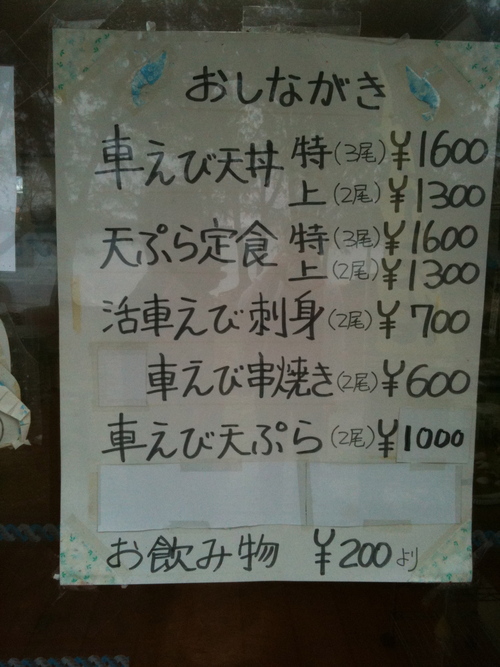 おしながき
車えび天丼 特(3尾)¥1600
上(2尾)¥1300
天ぷら定食 特(3尾)¥1600
上(2尾)¥1300
活車えび刺身(2尾)¥700
車えび串焼き(2尾)¥600
車えび天ぷら(2尾)¥1000
お飲み物 ¥200より